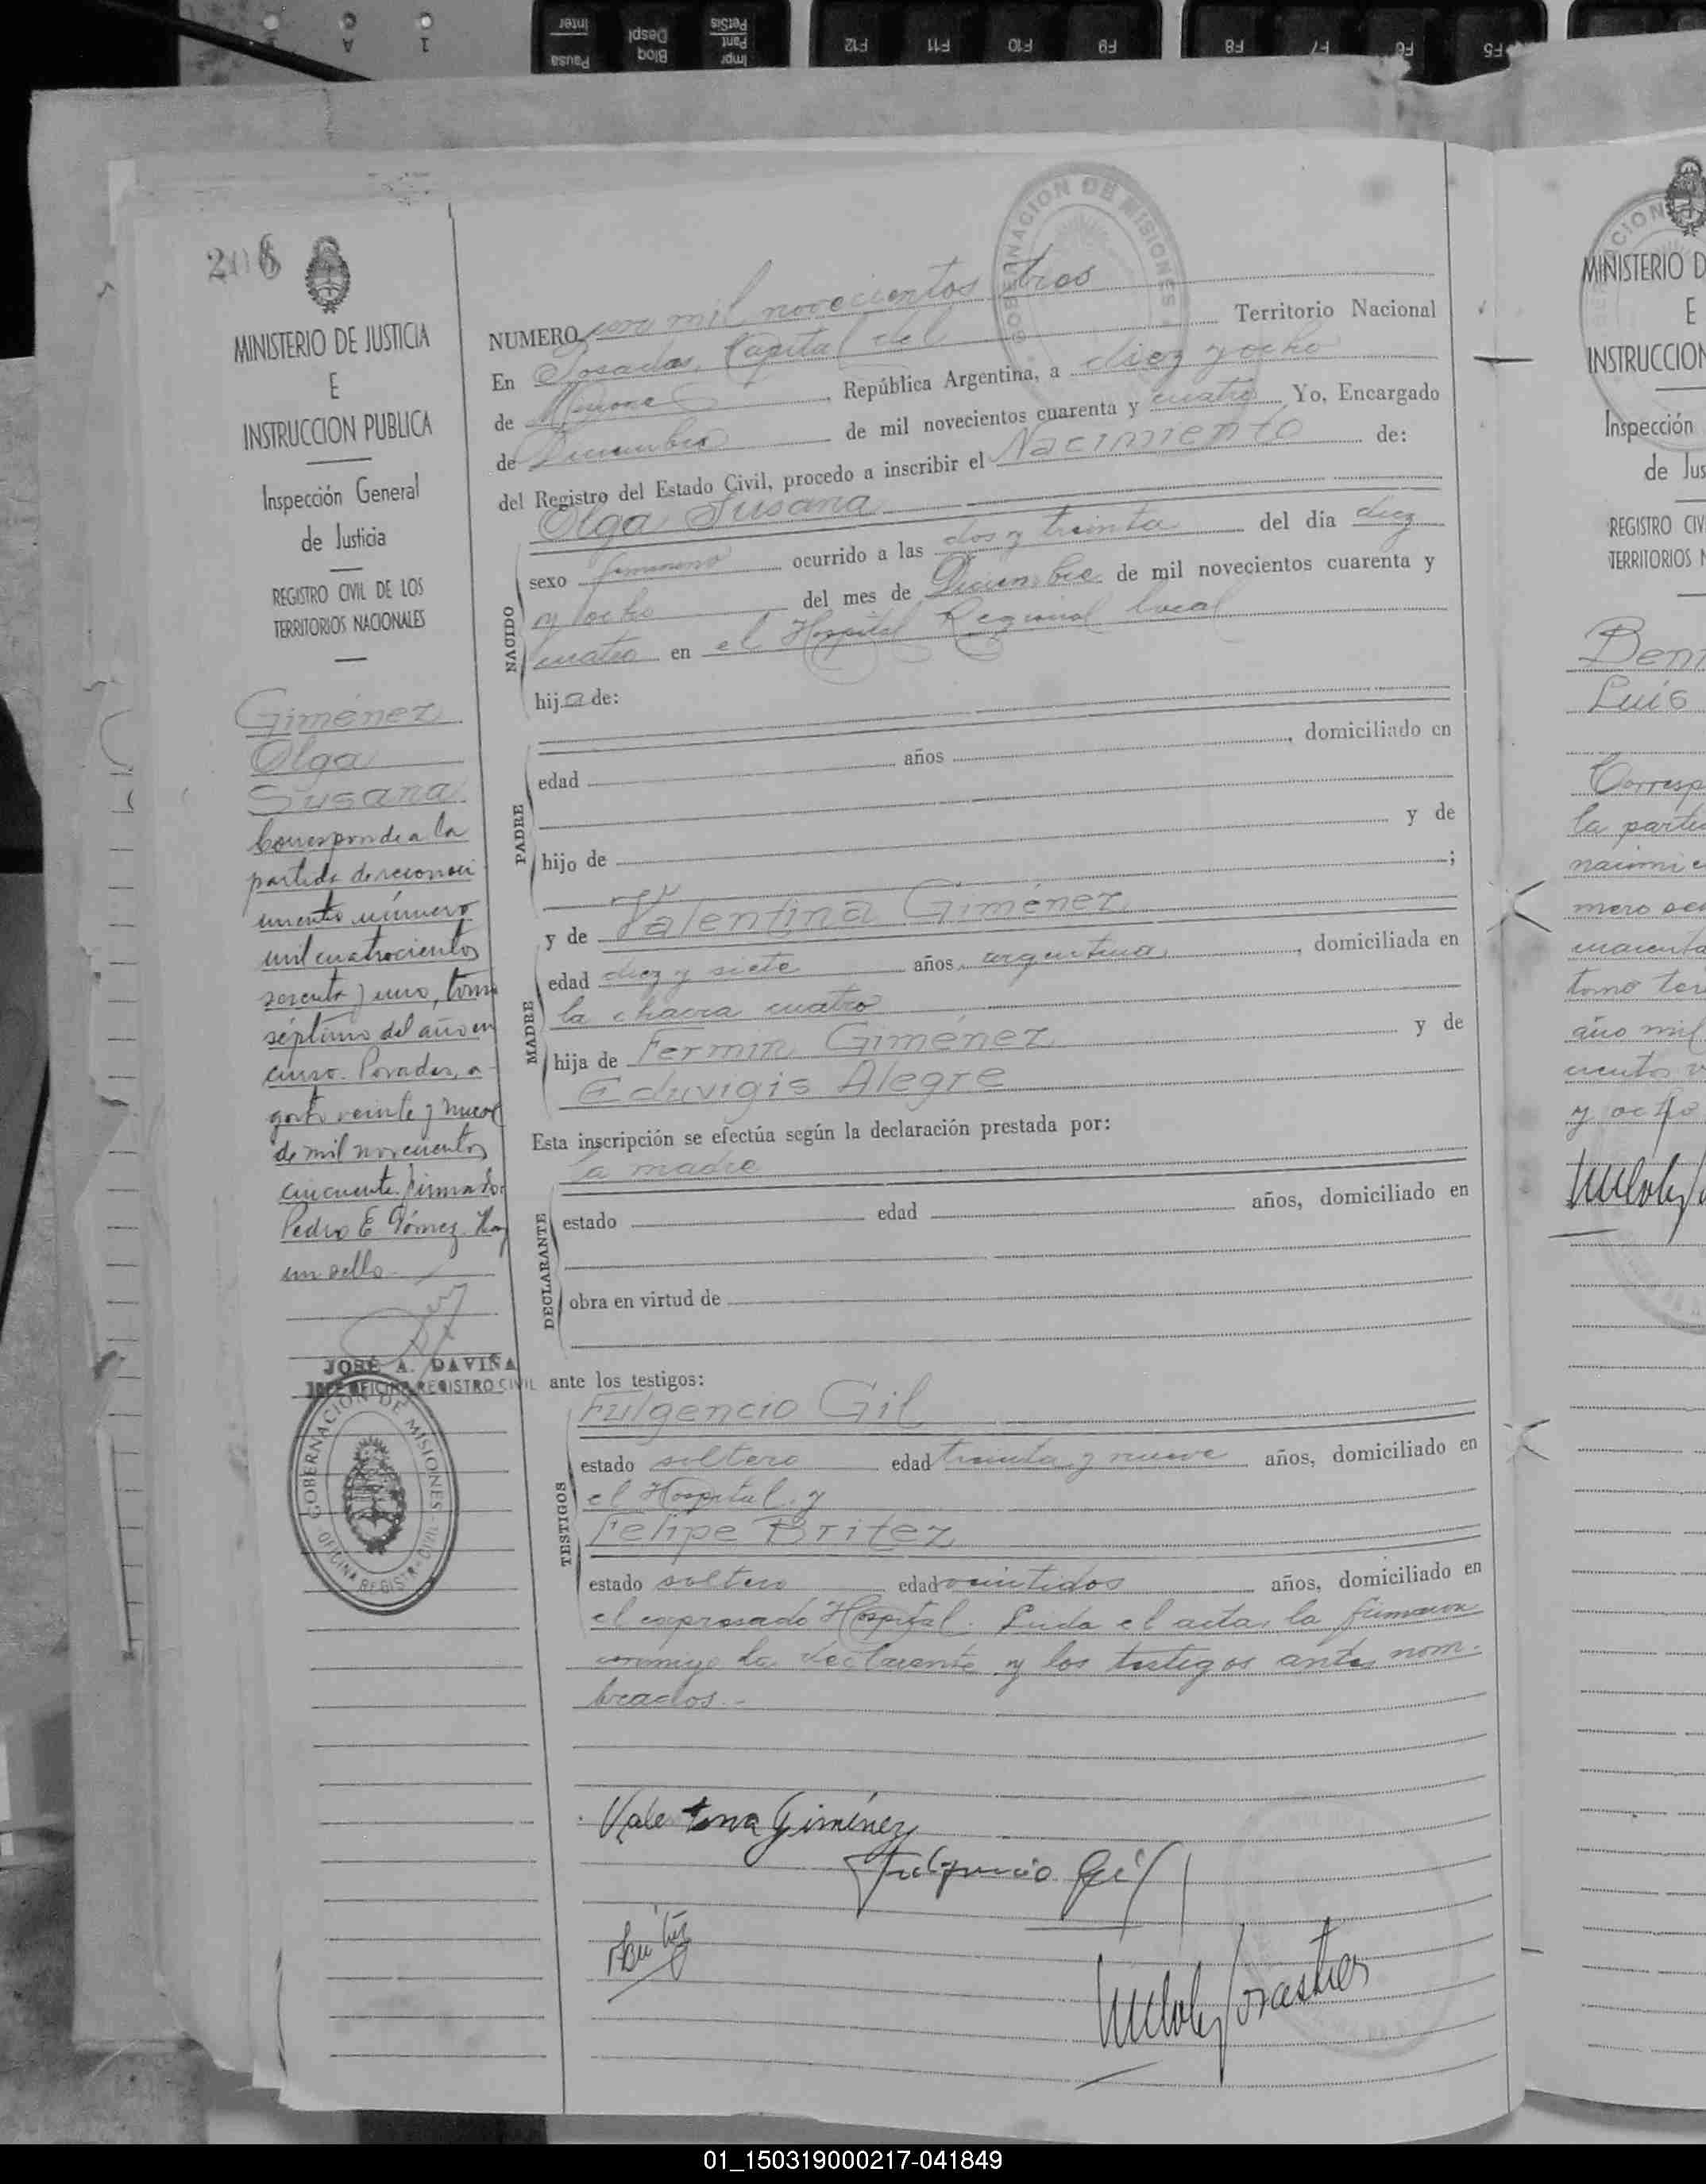 206
MINISTERIO DE JUSTICIA
E
INSTRUCCION PUBLICA
Inspección General
de Justicia
REGISTRO CIVIL DE LOS
TERRITORIOS NACIONALES
Giménez
Olga
Susana
Corresponde a la
partida de reconoci
miento número
mil cuatrocientos
sesenta y uno, tomo
séptimo del año en
curso. Posadas, a
gosto veinte y nueve
de mil novecientos
cincuenta. firmado:
Pedro E. Gómez. Hay
un sello
JOSÉ A. DAVIÑA
JEFE OFICINA REGISTRO CIVIL
GOBERNACION DE MISIONES
OFICINA REGISTRO CIVIL
GOBERNACION DE MISIONES
NUMERO mil novecientos tres
En Posadas, Capital del Territorio Nacional
de Misiones, República Argentina, a diez y ocho
de Diciembre de mil novecientos cuarenta y cuatro Yo, Encargado
del Registro del Estado Civil, procedo a inscribir el Nacimiento de:
Olga Susana
NACIDO
sexo femenino ocurrido a las dos y treinta del día diez
y ocho del mes de Diciembre de mil novecientos cuarenta y
cuatro en el Hospital Regional local
hija de:
PADRE
edad años, domiciliado en
hijo de y de
;
y de Valentina Giménez
MADRE
edad diez y siete años, argentina, domiciliada en
la chacra cuatro
hija de Fermin Giménez y de
Eduvigis Alegre
Esta inscripción se efectúa según la declaración prestada por:
la madre
DECLARANTE
estado edad años, domiciliado en
obra en virtud de
ante los testigos:
Fulgencio Gil
TESTIGOS
estado soltero edad treinta y nueve años, domiciliado en
el Hospital y
Felipe Britez
estado soltero edad veintidos años, domiciliado en
el expresado Hospital. Leida el acta, la firmaron
conmigo la declarante y los testigos antes nom-
brados.-
Valentina Giménez
Fulgencio Gil
Britez
MINISTERIO D
E
INSTRUCCION
Inspección
de Jus
REGISTRO CIV
TERRITORIOS N
Luis
Corresp
la parti
nacimie
tomo ter
año mil
y ocho
Impr
Pant
PetSis
Bloq
Despl
Pausa
Inter
F12
F11
F10
F9
F8
F7
F6
F5
1
A
01_150319000217-041849